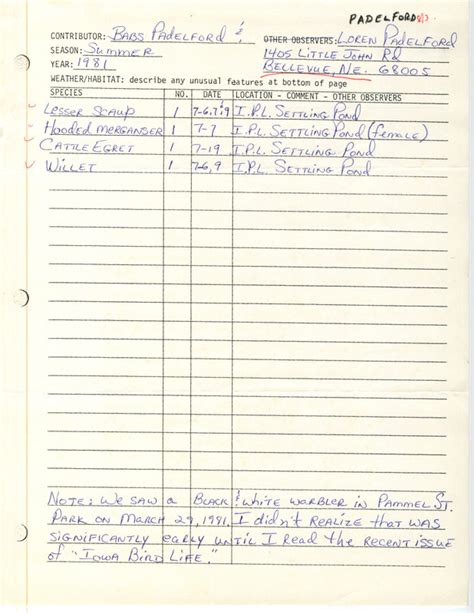 PADELFORD
CONTRIBUTOR: BABS PADELFORD & OTHER OBSERVERS: LOREN PADELFORD
SEASON: SUMMER 1405 LITTLE JOHN RD
YEAR: 1981 BELLEVUE, NE. 68005
WEATHER/HABITAT: describe any unusual features at bottom of page
SPECIES NO. DATE LOCATION - COMMENT - OTHER OBSERVERS
LESSER SCAUP 1 I.P.L. SETTLING POND
HOODED MERGANSER 1 7-7 I.P.L. SETTLING POND (female)
CATTLE EGRET 1 7-19 I.P.L. SETTLING POND
WILLET 1 7-6,9 I.P.L. SETTLING POND
NOTE: WE SAW a BLACK & WHITE WARBLER IN PAMMEL ST.
PARK ON MARCH 29, 1981. I didn't REALIZE that WAS
SIGNIFICANTLY EARLY UNTIL I READ the RECENT ISSUE
of "IOWA BIRD LIFE."